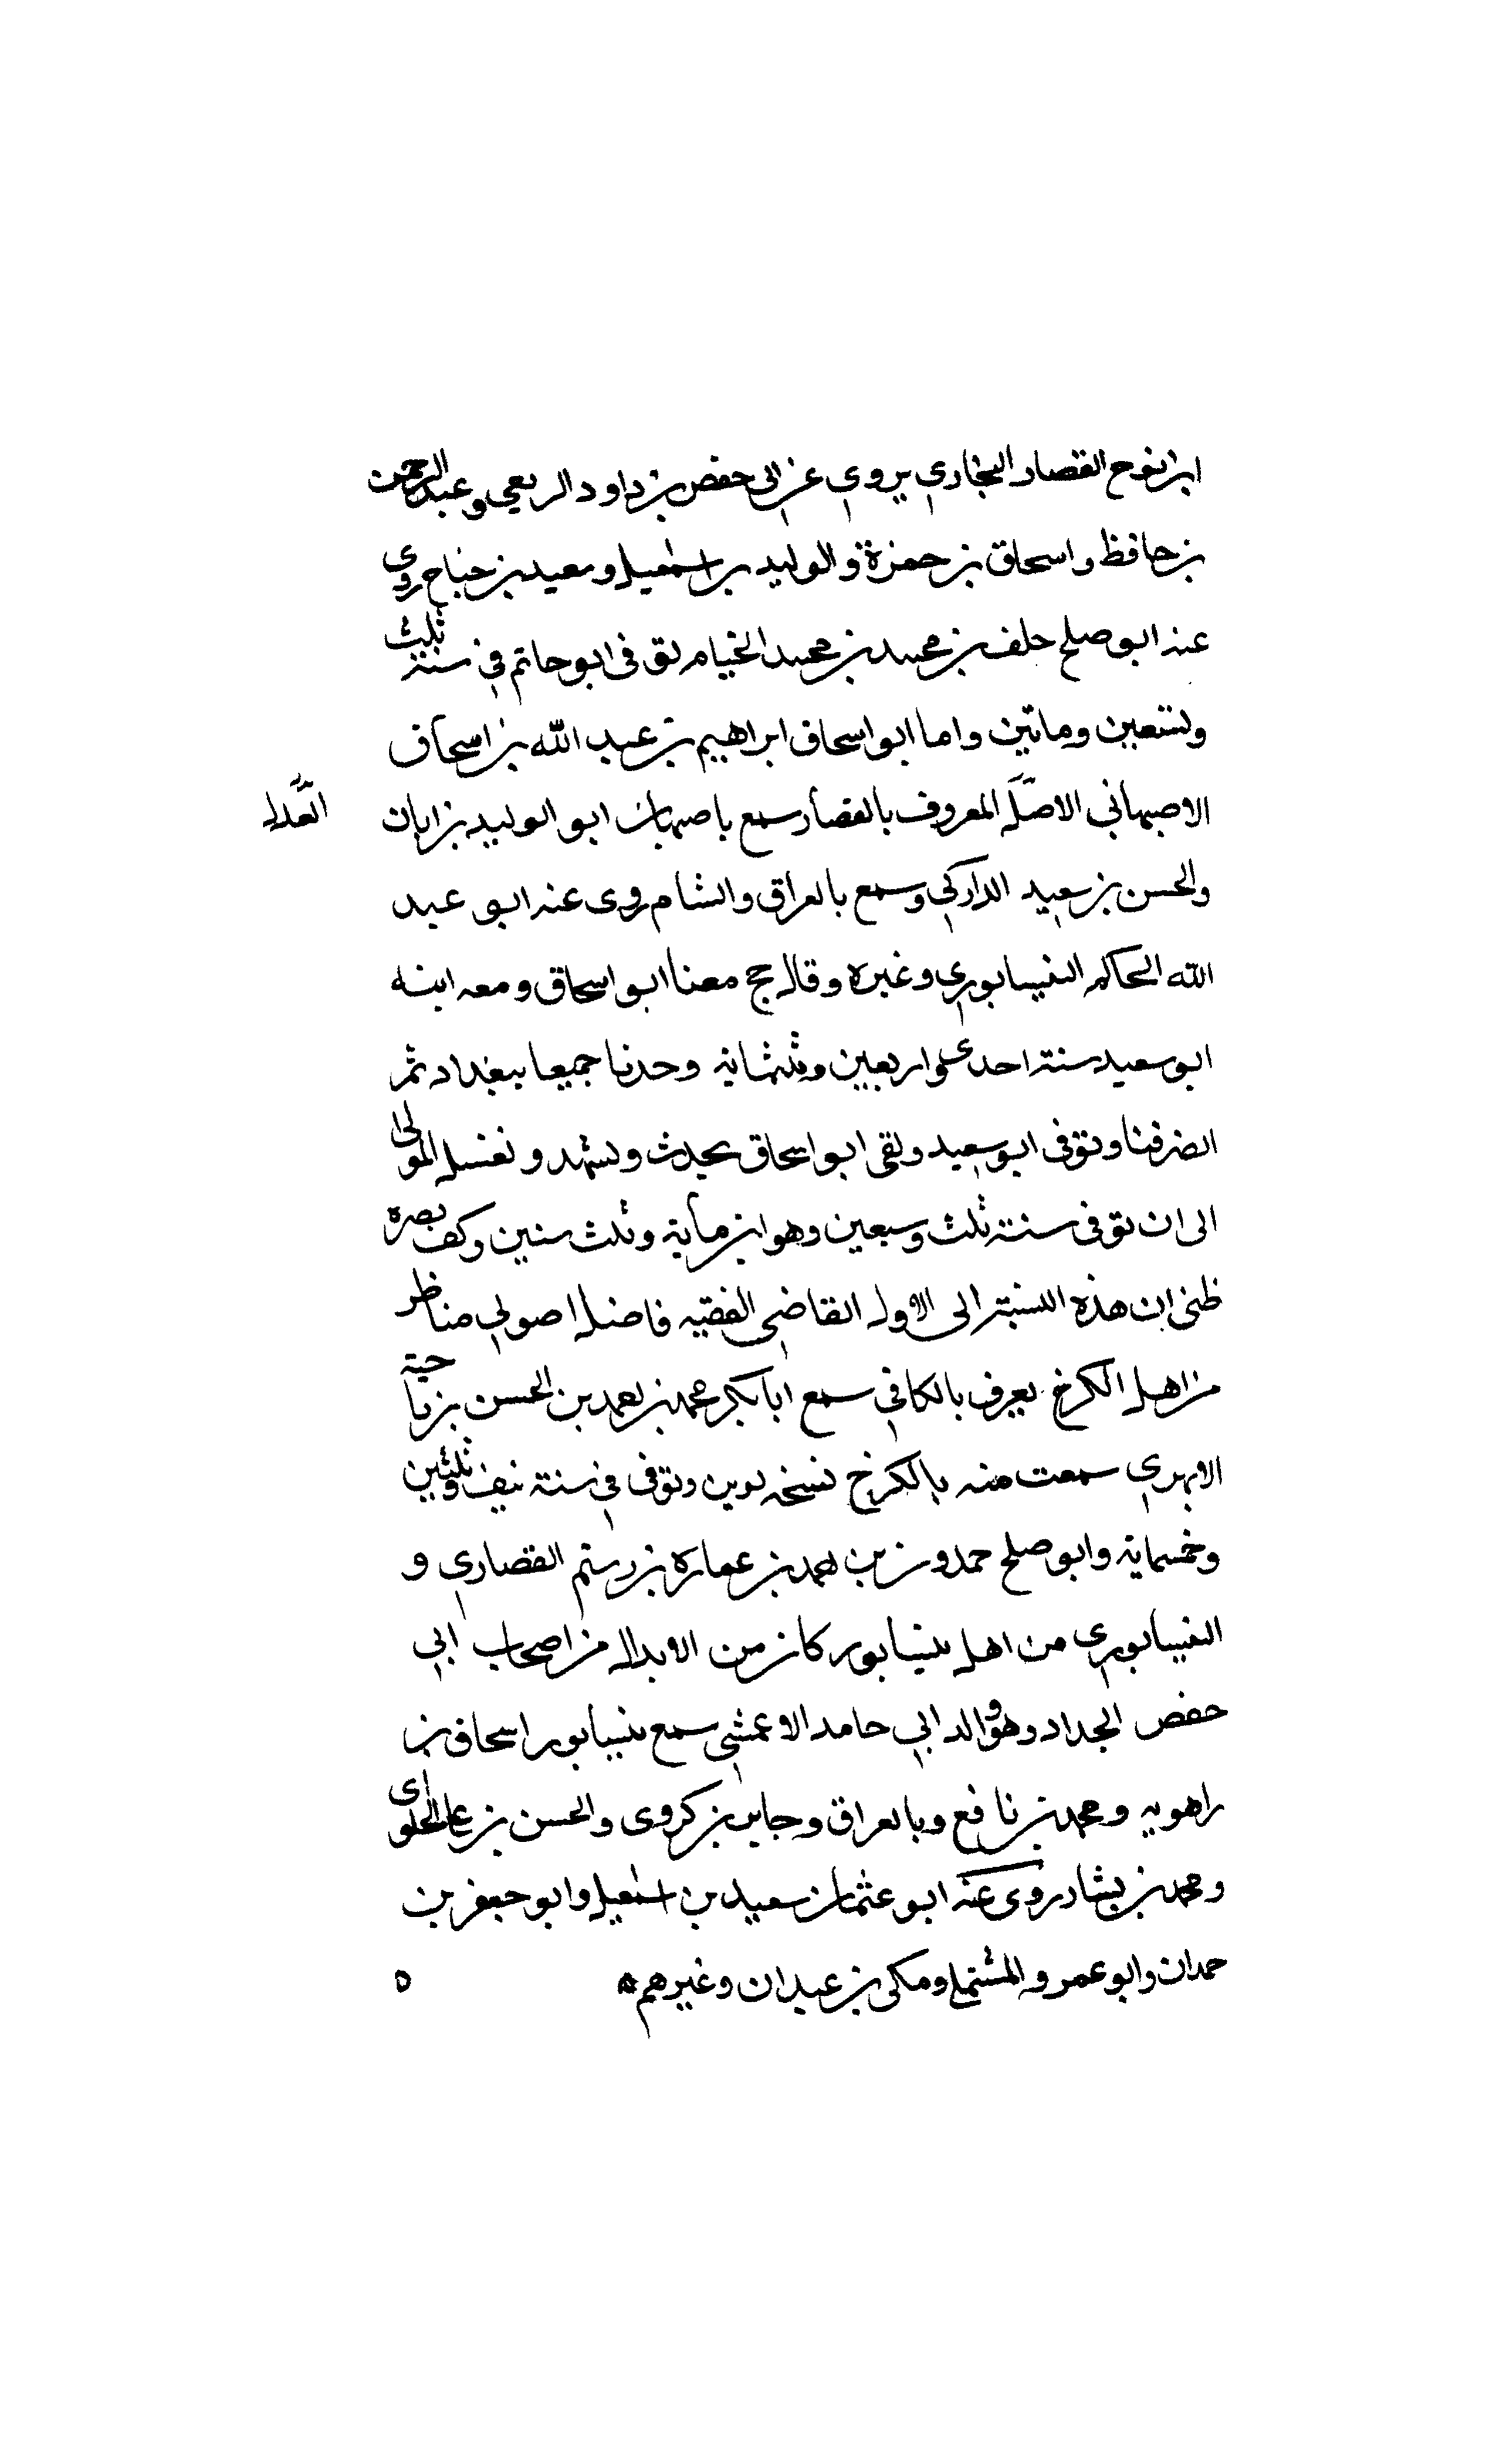 ابن نوح القصار البخاري يروي عن ابي حفص بن داود الربعي وعبد الرحمن
بن حافظ واسحاق بن حمزة والوليد بن اسمعيل وسعيد بن جناح روى
عنه ابو صلح خلف بن محمد بن محمد الخيام توفى ابو حاتم في سنة ثلث
وتسعين وماتين واما ابو اسحاق ابراهيم بن عبد الله بن اسحاق
الاصبهاني الاصل المعروف بالقصار سمع باصبهان ابو الوليد بن ابان
العدل
والحسن بن سعيد الداركي وسمع بالعراق والشام روى عنه ابو عبد
الله الحاكم النيسابوري وغيره وقال حج معنا ابو اسحاق ومعه ابنه
ابو سعيد سنة احدى واربعين وثلثماية وحدثا جميعا ببغداد ثم
انصرفنا وتوفى ابو سعيد وبقى ابو اسحاق يحدث ويشهد ويغسل الموتى
الى ان توفى سنة ثلث وسبعين وهو ابن ماية وثلث سنين وكف بصره
ظني ان هذه النسبة الى الاول القاضي الفقيه فاضل اصولي مناظر
من اهل الكرخ يعرف بالكافي سمع ابا بكر محمد بن احمد بن الحسن بن ماجة
الابهري سمعت منه بالكرخ نسخه لوين وتوفى في سنة نيف وثلثين
وخمسماية وابو صلح حمدون بن احمد بن عمارة بن رستم القصاري و
النيسابوري من اهل نيسابور كان من الابدال من اصحاب ابي
حفص الحداد وهو والد ابي حامد الاعمشي سمع بنيسابور اسحاق بن
راهويه ومحمد بن نافع وبالعراق وجابر بن كردى والحسن بن علي الحلواى
ومحمد بن بشار روى عنه ابو عثمان سعيد بن اسمعيل وابو جعفر بن
حمدان وابو عمرو المستملي ومكى بن عبدان وغيرهم